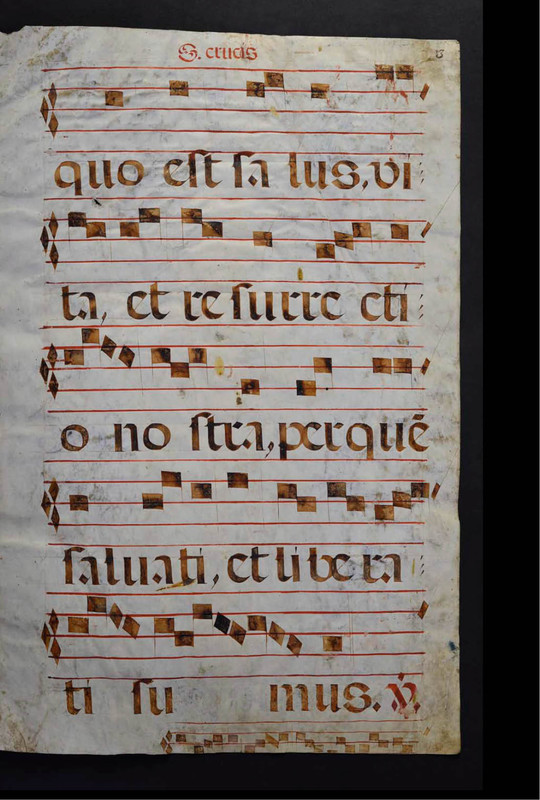 S. crucis
quo est sa lus, vi
ta, et re surre cti
o no stra, per quē
saluati, et libe ra
ti su mus. ℣.